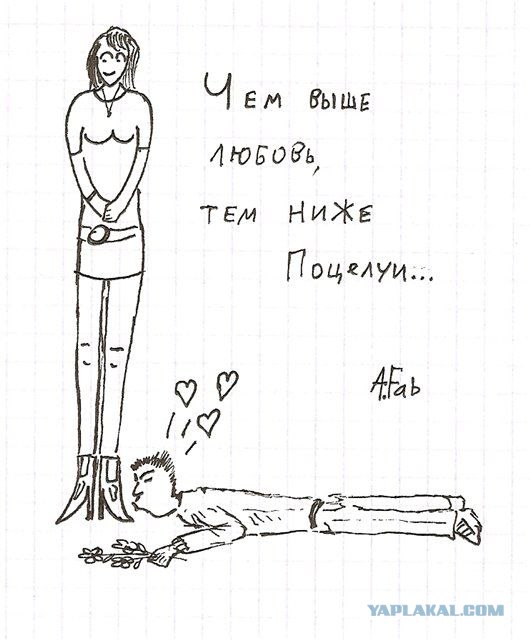 Чем выше
любовь,
тем ниже
Поцелуи...
A.Fab
YAPLAKAL.COM